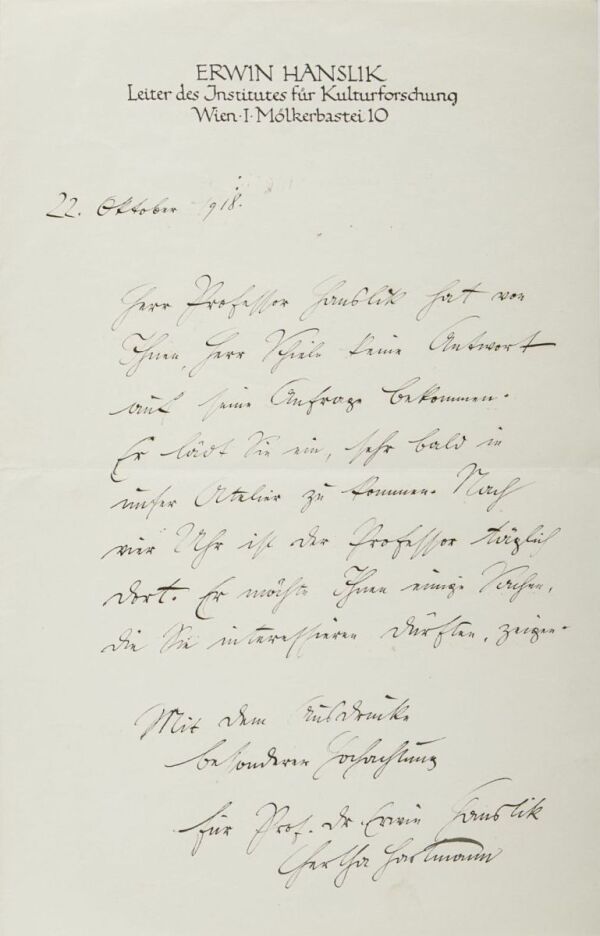 ERWIN HANSLIK
Leiter des Institutes für Kulturforschung
Wien·I·Mölkerbastei 10
22. Oktober 1918.
Herr Professor Hanslik hat von
Ihnen, Herr Schiele keine Antwort
auf seine Anfrage bekommen.
Er lädt Sie ein, sehr bald in
unser Atelier zu kommen. Nach
vier Uhr ist der Professor täglich
dort. Er möchte Ihnen einige Sachen,
die Sie interessieren dürften, zeigen.
Mit dem Ausdrucke
besonderer Hochachtung
für Prof. Dr Erwin Hanslik
Hertha Hartmann